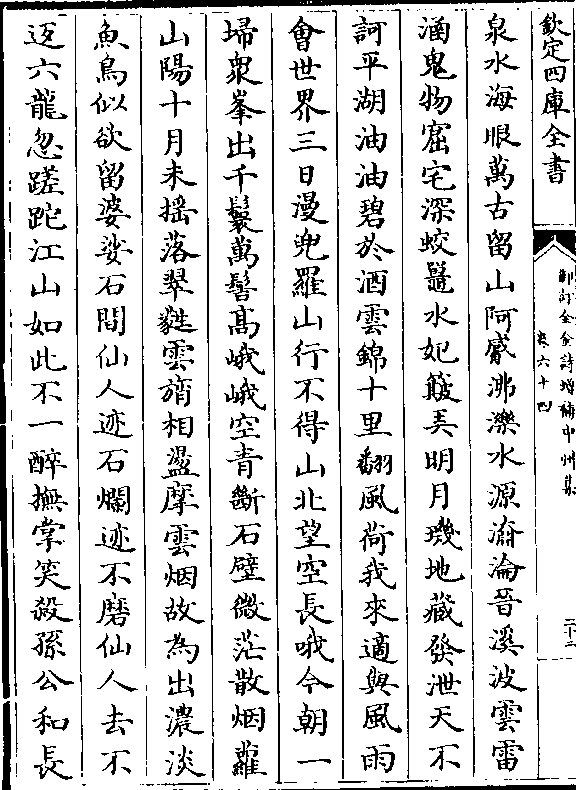 欽定四庫全書
御訂全金詩增補中州集
卷六十四
二十二
泉水海眼萬古留山阿觱沸濼水源淵淪晉溪波雲雷
涵鬼物窟宅深蛟鼉水妃簸弄明月璣地藏發泄天不
訶平湖油油碧於酒雲錦十里翻風荷我來適與風雨
會世界三日漫兜羅山行不得山北望空長哦今朝一
埽衆峯出千鬟萬髻高峨峨空青斷石壁微茫散烟蘿
山陽十月未搖落翠蕤雲旓相盪摩雲烟故為出濃淡
魚鳥似欲留婆娑石間仙人迹石爛迹不磨仙人去不
返六龍忽蹉跎江山如此不一醉撫掌笑殺孫公和長